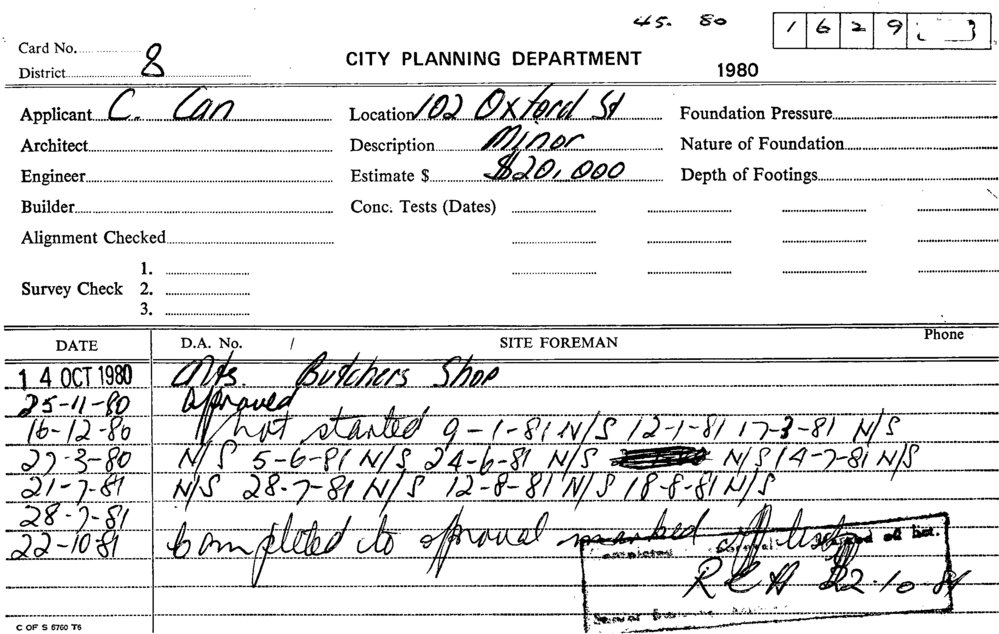 45. 80 1 6 2 9
Card No.
District 8
CITY PLANNING DEPARTMENT
1980
Applicant C. Can Location 102 Oxford St Foundation Pressure
Architect Description Minor Nature of Foundation
Engineer Estimate $ $20,000 Depth of Footings
Builder Conc. Tests (Dates)
Alignment Checked
1.
Survey Check 2.
3.
DATE D.A. No. / SITE FOREMAN Phone
14 OCT 1980 Alts. Butchers Shop
25-11-80 Approved
16-12-80 Not started 9-1-81 N/S 12-1-81 17-3-81 N/S
27-3-80 N/S 5-6-81 N/S 24-6-81 N/S N/S 14-7-81 N/S
21-7-81 N/S 28-7-81 N/S 12-8-81 N/S 18-8-81 N/S
28-7-81
22-10-81 Completed to approval marked off list
off list.
22-10-81
C OF S 6760 T6